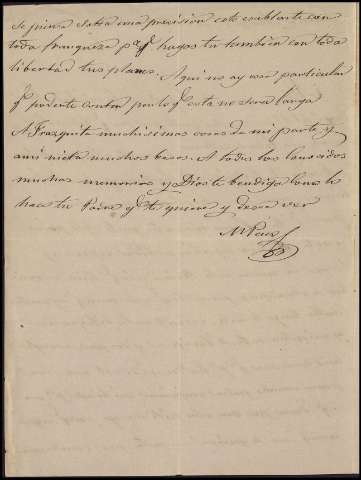 se fuera esta una precision este hablarte con
toda franqueza pa. q.e hagas tu tambien con toda
libertad tus planes. Aqui no ay cosa particular
q.e poderte contar por lo q.e esta no sera larga
A Frasquita muchisimas cosas de mi parte y
a mi nieta muchos besos. A todos los conocidos
muchas memorias y Dios te bendiga como lo
hace tu Padre q.e te quiere y desea ver
M Perez